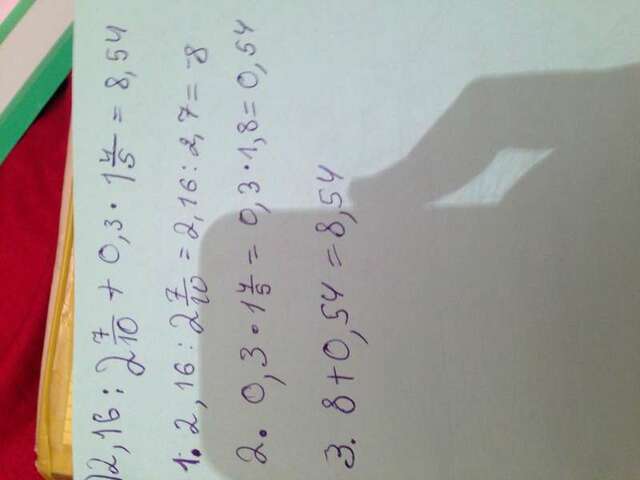 )2,16 : 2 7/10 + 0,3 · 1 4/5 = 8,54
1. 2,16 : 2 7/10 = 2,16 : 2,7 = 8
2. 0,3 · 1 4/5 = 0,3 · 1,8 = 0,54
3. 8 + 0,54 = 8,54